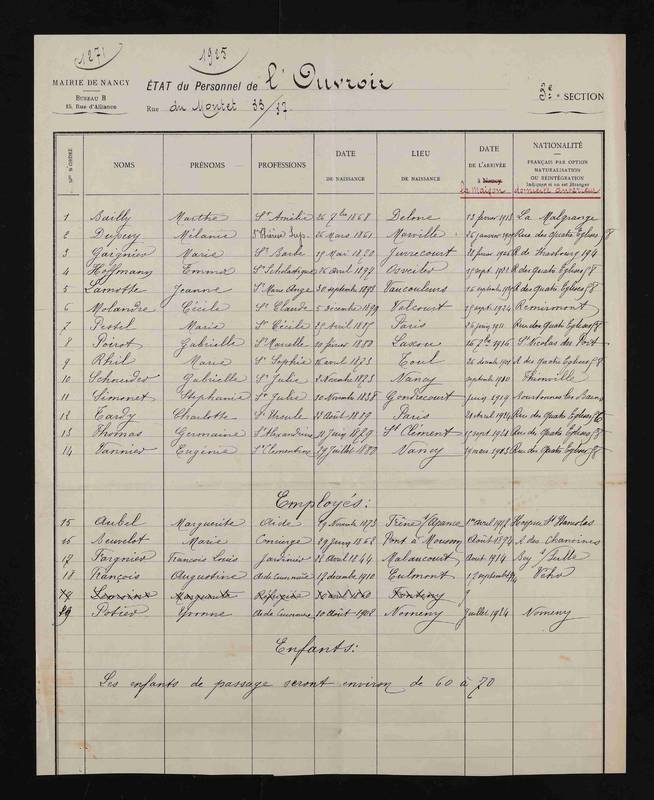 1271
1925
MAIRIE DE NANCY
BUREAU B
15, Rue d'Alliance
ÉTAT du Personnel de l'Ouvroir
Rue du Montet 33/37
3e SECTION
Nos D'ORDRE NOMS PRÉNOMS PROFESSIONS DATE DE NAISSANCE LIEU DE NAISSANCE DATE DE L'ARRIVÉE à Nancy la Maison NATIONALITÉ FRANÇAIS PAR OPTION NATURALISATION OU RÉINTÉGRATION Indiquer si on est Étranger domicile antérieur
1 Bailly Marthe Sr Amélie 26 7bre 1868 Delme 13 février 1913 La Malgrange
2 Dupuy Mélanie Sup. 26 Mars 1861 Merville 26 janvier Rue des Quatre Eglises 58
3 Marie Sr Barbe 29 Mai 1870 R. de Strasbourg 194
4 Hoffmann Emma Sr Scholastique 26 avril 1898 29 sept. R. des Quatre Eglises 58
5 Lamotte Jeanne Sr Marie Ange 30 septembre 1895 Vaucouleurs R. des Quatre Eglises 58
6 Molandre Cécile Sr Claude 5 décembre Valcourt 29 sept. 1924 Remiremont
7 Pestel Marie Sr Cécile 29 avril Paris 26 juin Rue des Quatre Eglises 58
8 Poirot Gabrielle Sr Marcelle 20 février 1880 Laxou 16 7bre 1916 St Nicolas du Port
9 Marie Sr Sophie avril 1873 Toul R. des Quatre Eglises 58
10 Schneider Gabrielle Sr Julie 3 Novembre 1873 Nancy septembre Thionville
11 Simonet Stéphanie Sr Julie 20 Novembre 1858 Gondrecourt juin 1919 Bourbonne les Bains
12 Tardy Charlotte Sr Ursule 22 Août 1889 Paris avril 1924 Rue des Quatre Eglises
13 Thomas Germaine Sr Alexandrine 21 Juin St Clément 17 sept. Rue des Quatre Eglises 58
14 Vannier Eugénie Sr Clémentine 29 Juillet 1880 Nancy 19 mars 1903 Rue des Quatre Eglises 58
Employés:
15 Aubel Marguerite Aide Novemb. 1873 1er avril Hospice St Stanislas
16 Beuvelot Marie Concierge 29 Juin 1862 Pont à Mousson Août 1894 R. des Chanoines
17 Fargnier François Louis Jardinier avril 1844 Malaucourt Août 1914 Bey s/ Seille
18 François Augustine Aide Couronnée 17 décembre 1910 Eulmont 17 septemb.
Marguerite Réfugiée Avril 1860 Fontenoy ?
19 Potier Yvonne Aide 20 Août 1908 Nomeny Juillet 1924 Nomeny
Enfants:
Les enfants de passage seront environ de 60 à 70